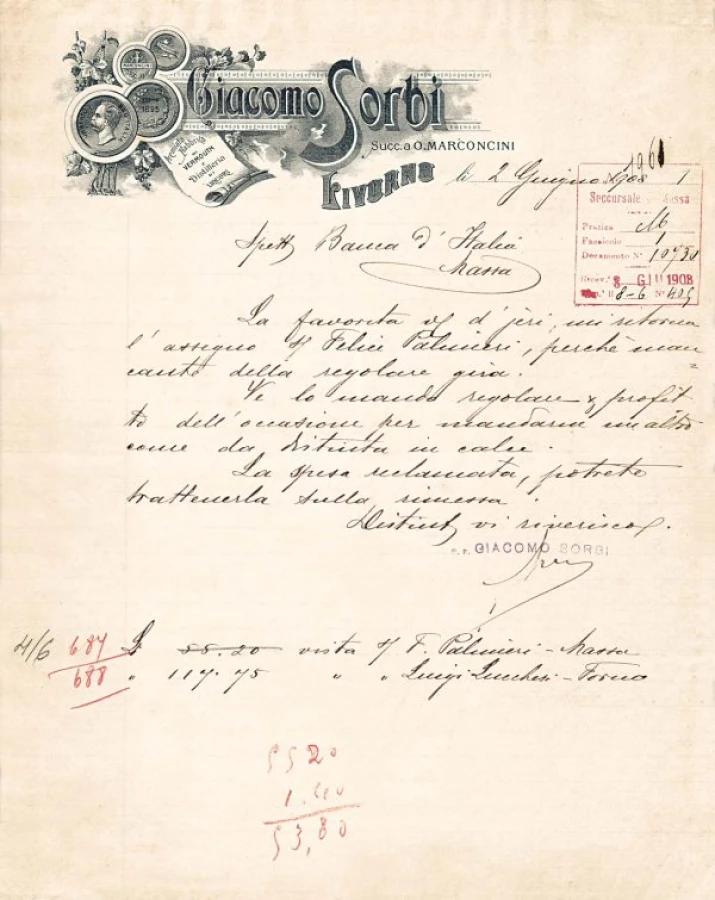 MARCONCINI
1895
Giacomo Sorbi
Succ. a O. MARCONCINI
Fabbrica
DI
VERMOUTH
e
Distilleria
DI
LIQUORI
LIVORNO li 2 Giugno 1908
1
Succursale Massa
Pratica M
Fascicolo 1
Documento N°
Ricev. 8 GIU 1908
8-6 N° 405
Spett Banca d'Italia
Massa
La favorita vs d'jeri, mi ritorna
l'assegno s/ Felice Palmieri, perchè man=
cante della regolare gira.
Ve lo mando regolare & profit
to dell'occasione per mandarne un altro
come da distinta in calce.
La spesa reclamata, potrete
trattenerla sulla rimessa.
Distint vi riverisco.
p. p. GIACOMO SORBI
4/6 687 £ 55.20 vista s/ F. Palmieri - Massa
688 " 117.75 " " Luigi Lucchesi - Forno
55 20
1.40
53,80